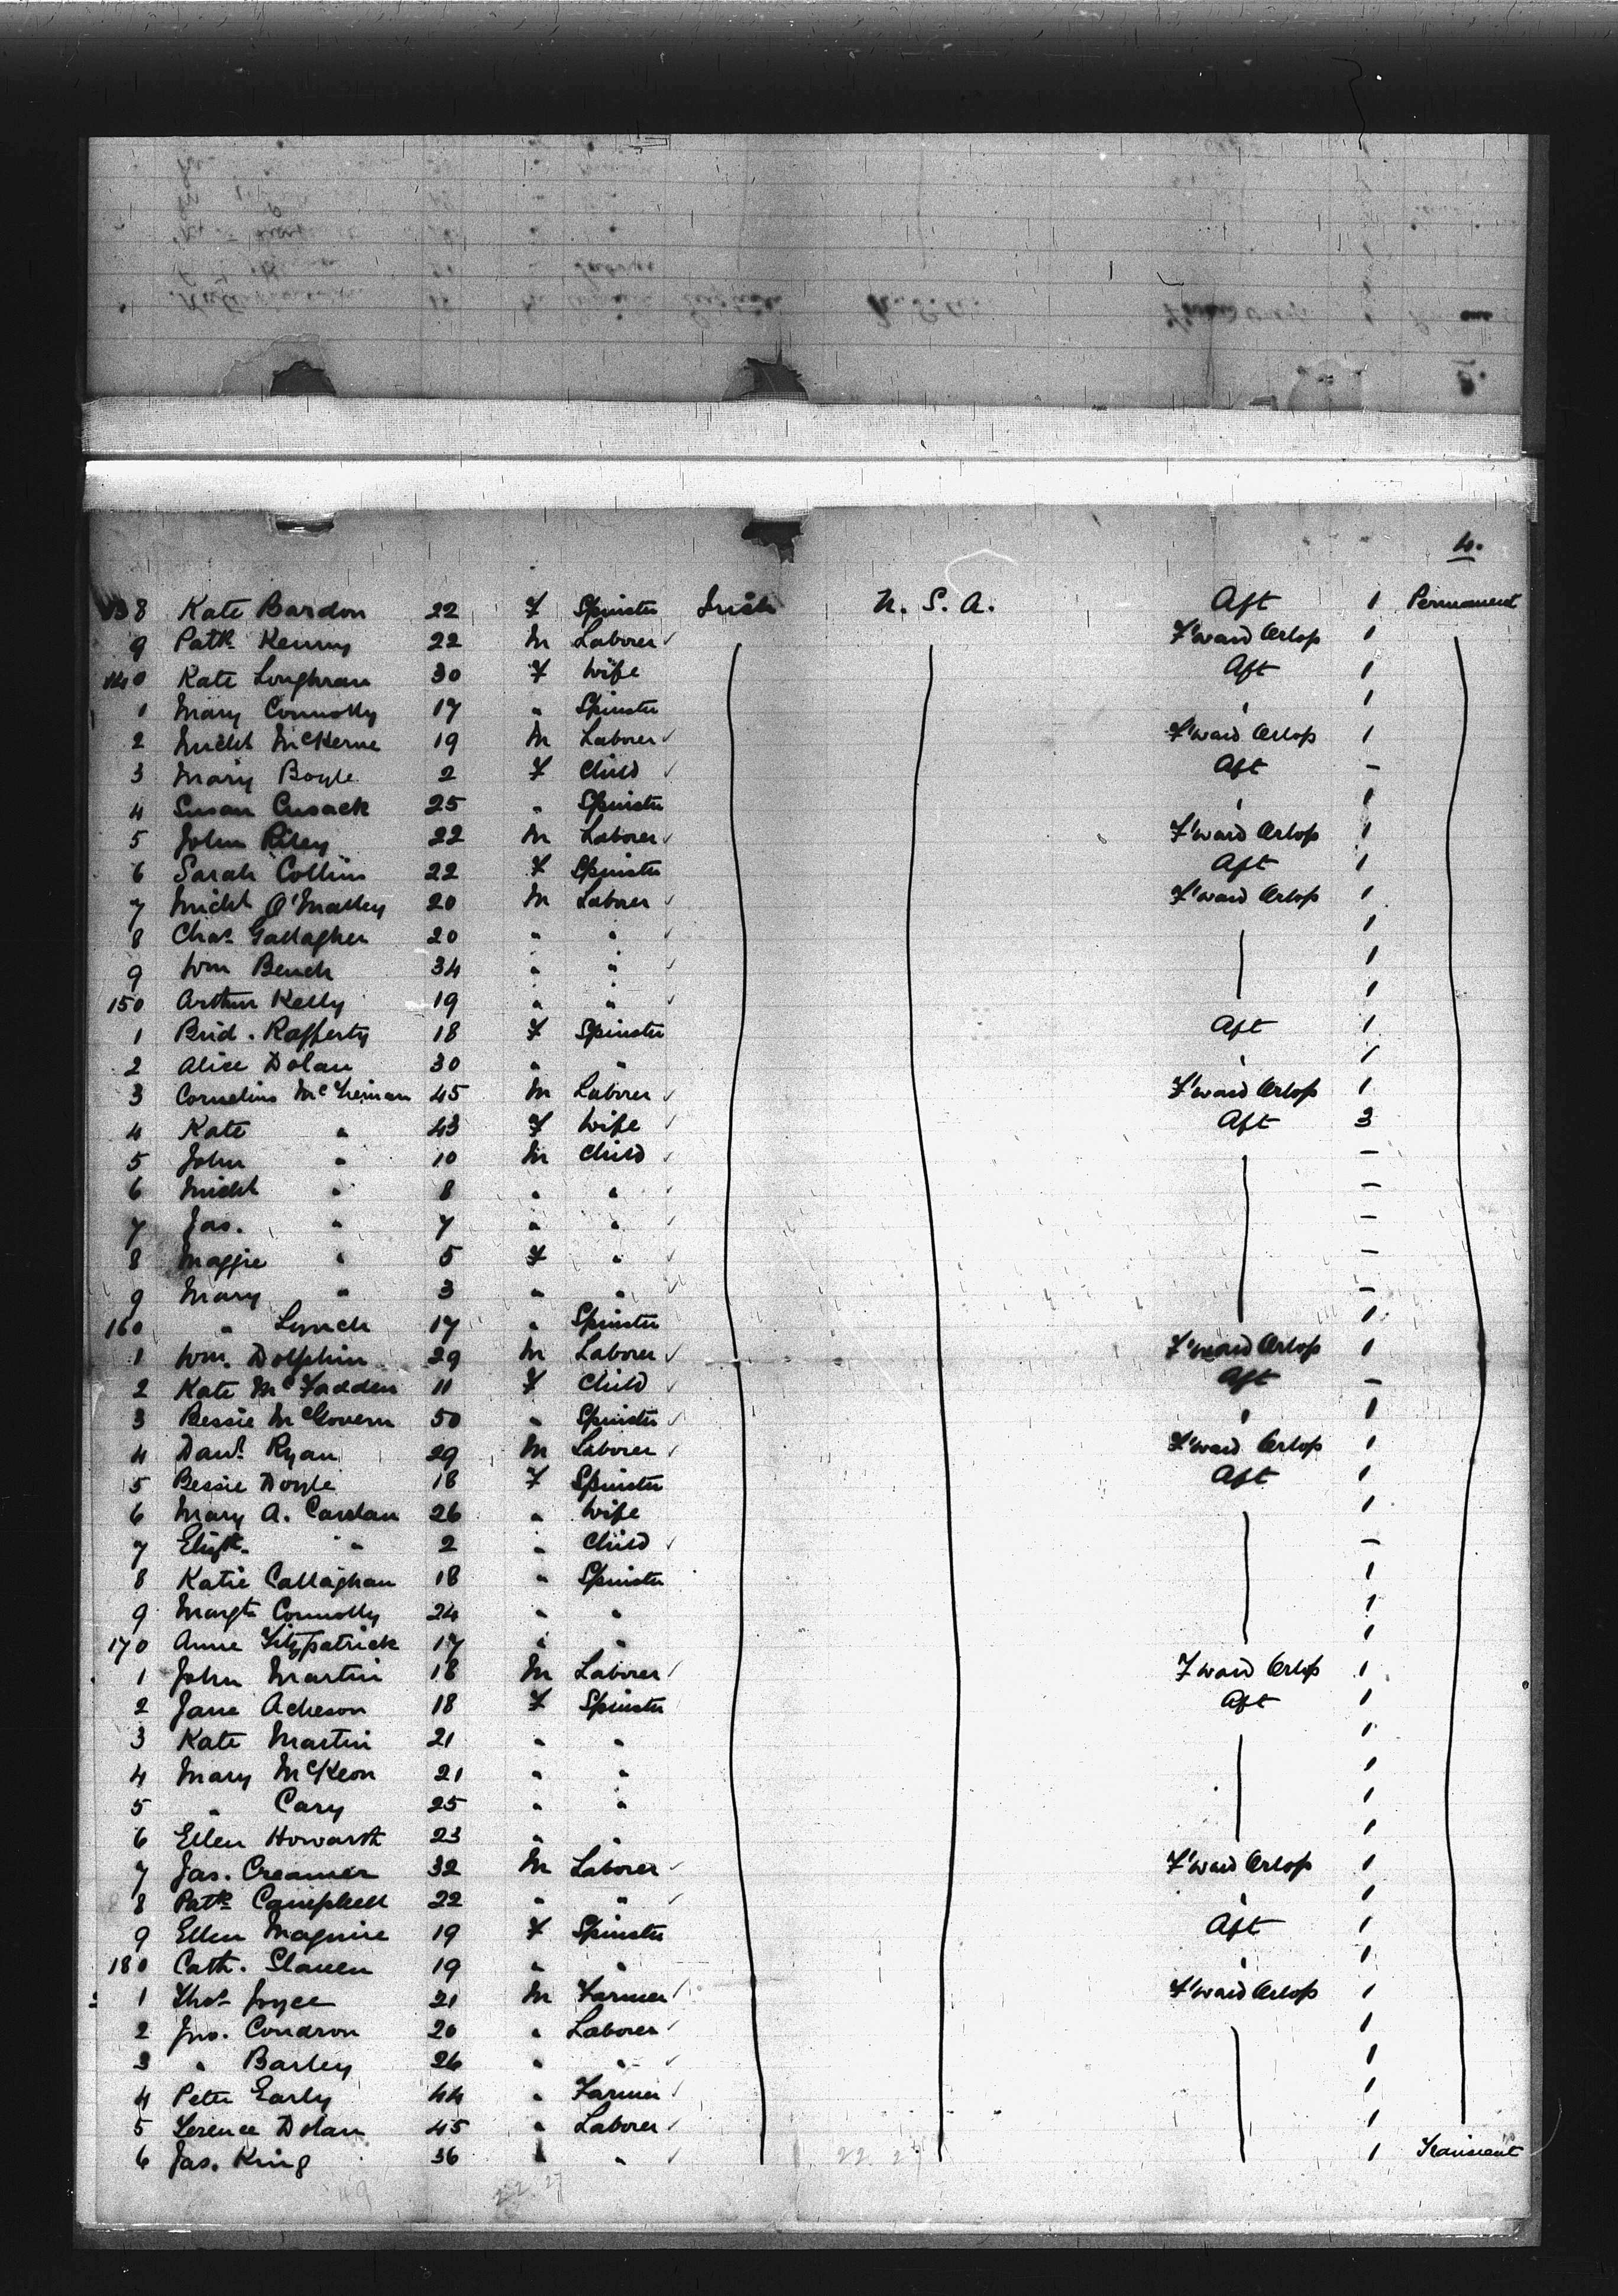 4.
138 Kate Bardon 22 F Spinster Irish U. S. A. Aft 1 Permanent
9 Patk Kenny 22 M Laborer ✓ F'ward Orlop 1
140 Kate Loughran 30 F Wife Aft 1
1 Mary Connolly 17 " Spinster " 1
2 Michl McKerne 19 M Laborer ✓ F'ward Orlop 1
3 Mary Boyle 2 F Child ✓ Aft -
4 Susan Cusack 25 " Spinster " 1
5 John Riley 22 M Laborer ✓ F'ward Orlop 1
6 Sarah Collins 22 F Spinster Aft 1
7 Michl O'Malley 20 M Laborer ✓ F'ward Orlop 1
8 Chas. Gallagher 20 " " ✓ 1
9 Wm Bench 34 " " ✓ 1
150 Arthur Kelly 19 " " ✓ 1
1 Brid. Rafferty 18 F Spinster Aft 1
2 Alice Dolan 30 " " " 1
3 Cornelius McTiernan 45 M Laborer ✓ F'ward Orlop 1
4 Kate " 43 F Wife ✓ Aft 3
5 John " 10 M Child ✓ -
6 Michl " 8 " " ✓ -
7 Jas. " 7 " " ✓ -
8 Maggie " 5 F " ✓ -
9 Mary " 3 " " ✓ -
160 " Lynch 17 " Spinster 1
1 Wm. Dolphin 29 M Laborer ✓ F'ward Orlop 1
2 Kate McFadden 11 F Child ✓ Aft -
3 Bessie McGovern 50 " Spinster ✓ " 1
4 Danl. Ryan 29 M Laborer ✓ F'ward Orlop 1
5 Bessie Doyle 18 F Spinster Aft 1
6 Mary A. Carolan 26 " Wife 1
7 Elizth. " 2 " Child ✓ -
8 Katie Callaghan 18 " Spinster 1
9 Margt Connolly 24 " " 1
170 Anne Fitzpatrick 17 " " 1
1 John Martin 18 M Laborer ✓ F'ward Orlop 1
2 Jane Acheson 18 F Spinster Aft 1
3 Kate Martin 21 " " 1
4 Mary McKeon 21 " " 1
5 " Cary 25 " " 1
6 Ellen Howarth 23 " " 1
7 Jas. Creamer 32 M Laborer ✓ F'ward Orlop 1
8 Patk Campbell 22 " " ✓ " 1
9 Ellen Maguire 19 F Spinster Aft 1
180 Cath. Slaven 19 " " " 1
1 Thos. Joyce 21 M Farmer ✓ F'ward Orlop 1
2 Jno. Condron 20 " Laborer ✓ 1
3 " Barley 26 " " ✓ 1
4 Peter Early 44 " Farmer ✓ 1
5 Terence Dolan 45 " Laborer ✓ 1
6 Jas. King 36 " " ✓ 1 Transient